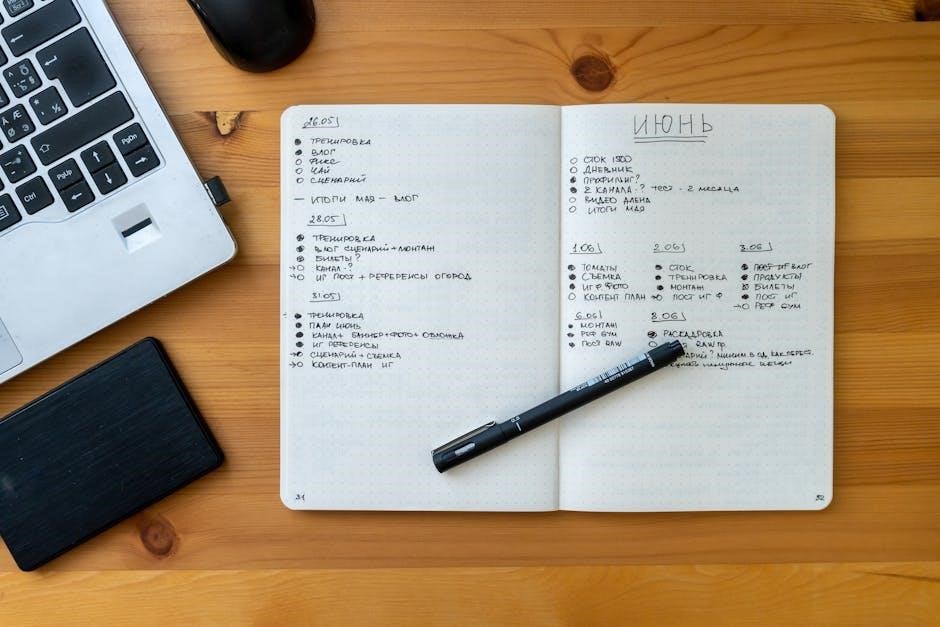 26.05
ТРЕНИРОВКА
ВЛОГ
ФИКС
ЧАЙ
СЦЕНАРИЙ
— ИТОГИ МАЯ — ВЛОГ
28.05
ТРЕНИРОВКА
ВЛОГ СЦЕНАРИЙ + МОНТАЖ
БИЛЕТЫ?
КАНАЛ - ?
ИГ ПОСТ + РЕФЕРЕНСЫ ОГОРОД
31.05
ТРЕНИРОВКА
ПЛАН ИЮНЬ
КАНАЛ + БАННЕР + ФОТО + ОБЛОЖКА
ИГ РЕФЕРЕНСЫ
СЦЕНАРИЙ + СЪЕМКА
КОНТЕНТ-ПЛАН ИГ
31
ИЮНЬ
СТОК 1500
ДНЕВНИК
ПРОФИЛЬНГ?
2 КАНАЛА - ? ТЕСТ - 2 МЕСЯЦА
ВИДЕО
ИТОГИ МАЯ
1.06
ТОМАТЫ
СЪЕМКА
ИГ Ф ФОТО
КОНТЕНТ ПЛАН
2.06
СТОК
ТРЕНИРОВКА
МОНТАЖ
ПОСТ ИГ Ф
3.06
ПОСТ ИГ ВЛОГ
ПРОДУКТЫ
БИЛЕТЫ
ПОСТ ИГ
РЕФ GYM
6.06
МОНТАЖ
РЕФ GYM
ПОСТ RAW
8.06
РАСКАДРОВКА
RAW ПР.
32
Ctrl
PgUp
PgDn